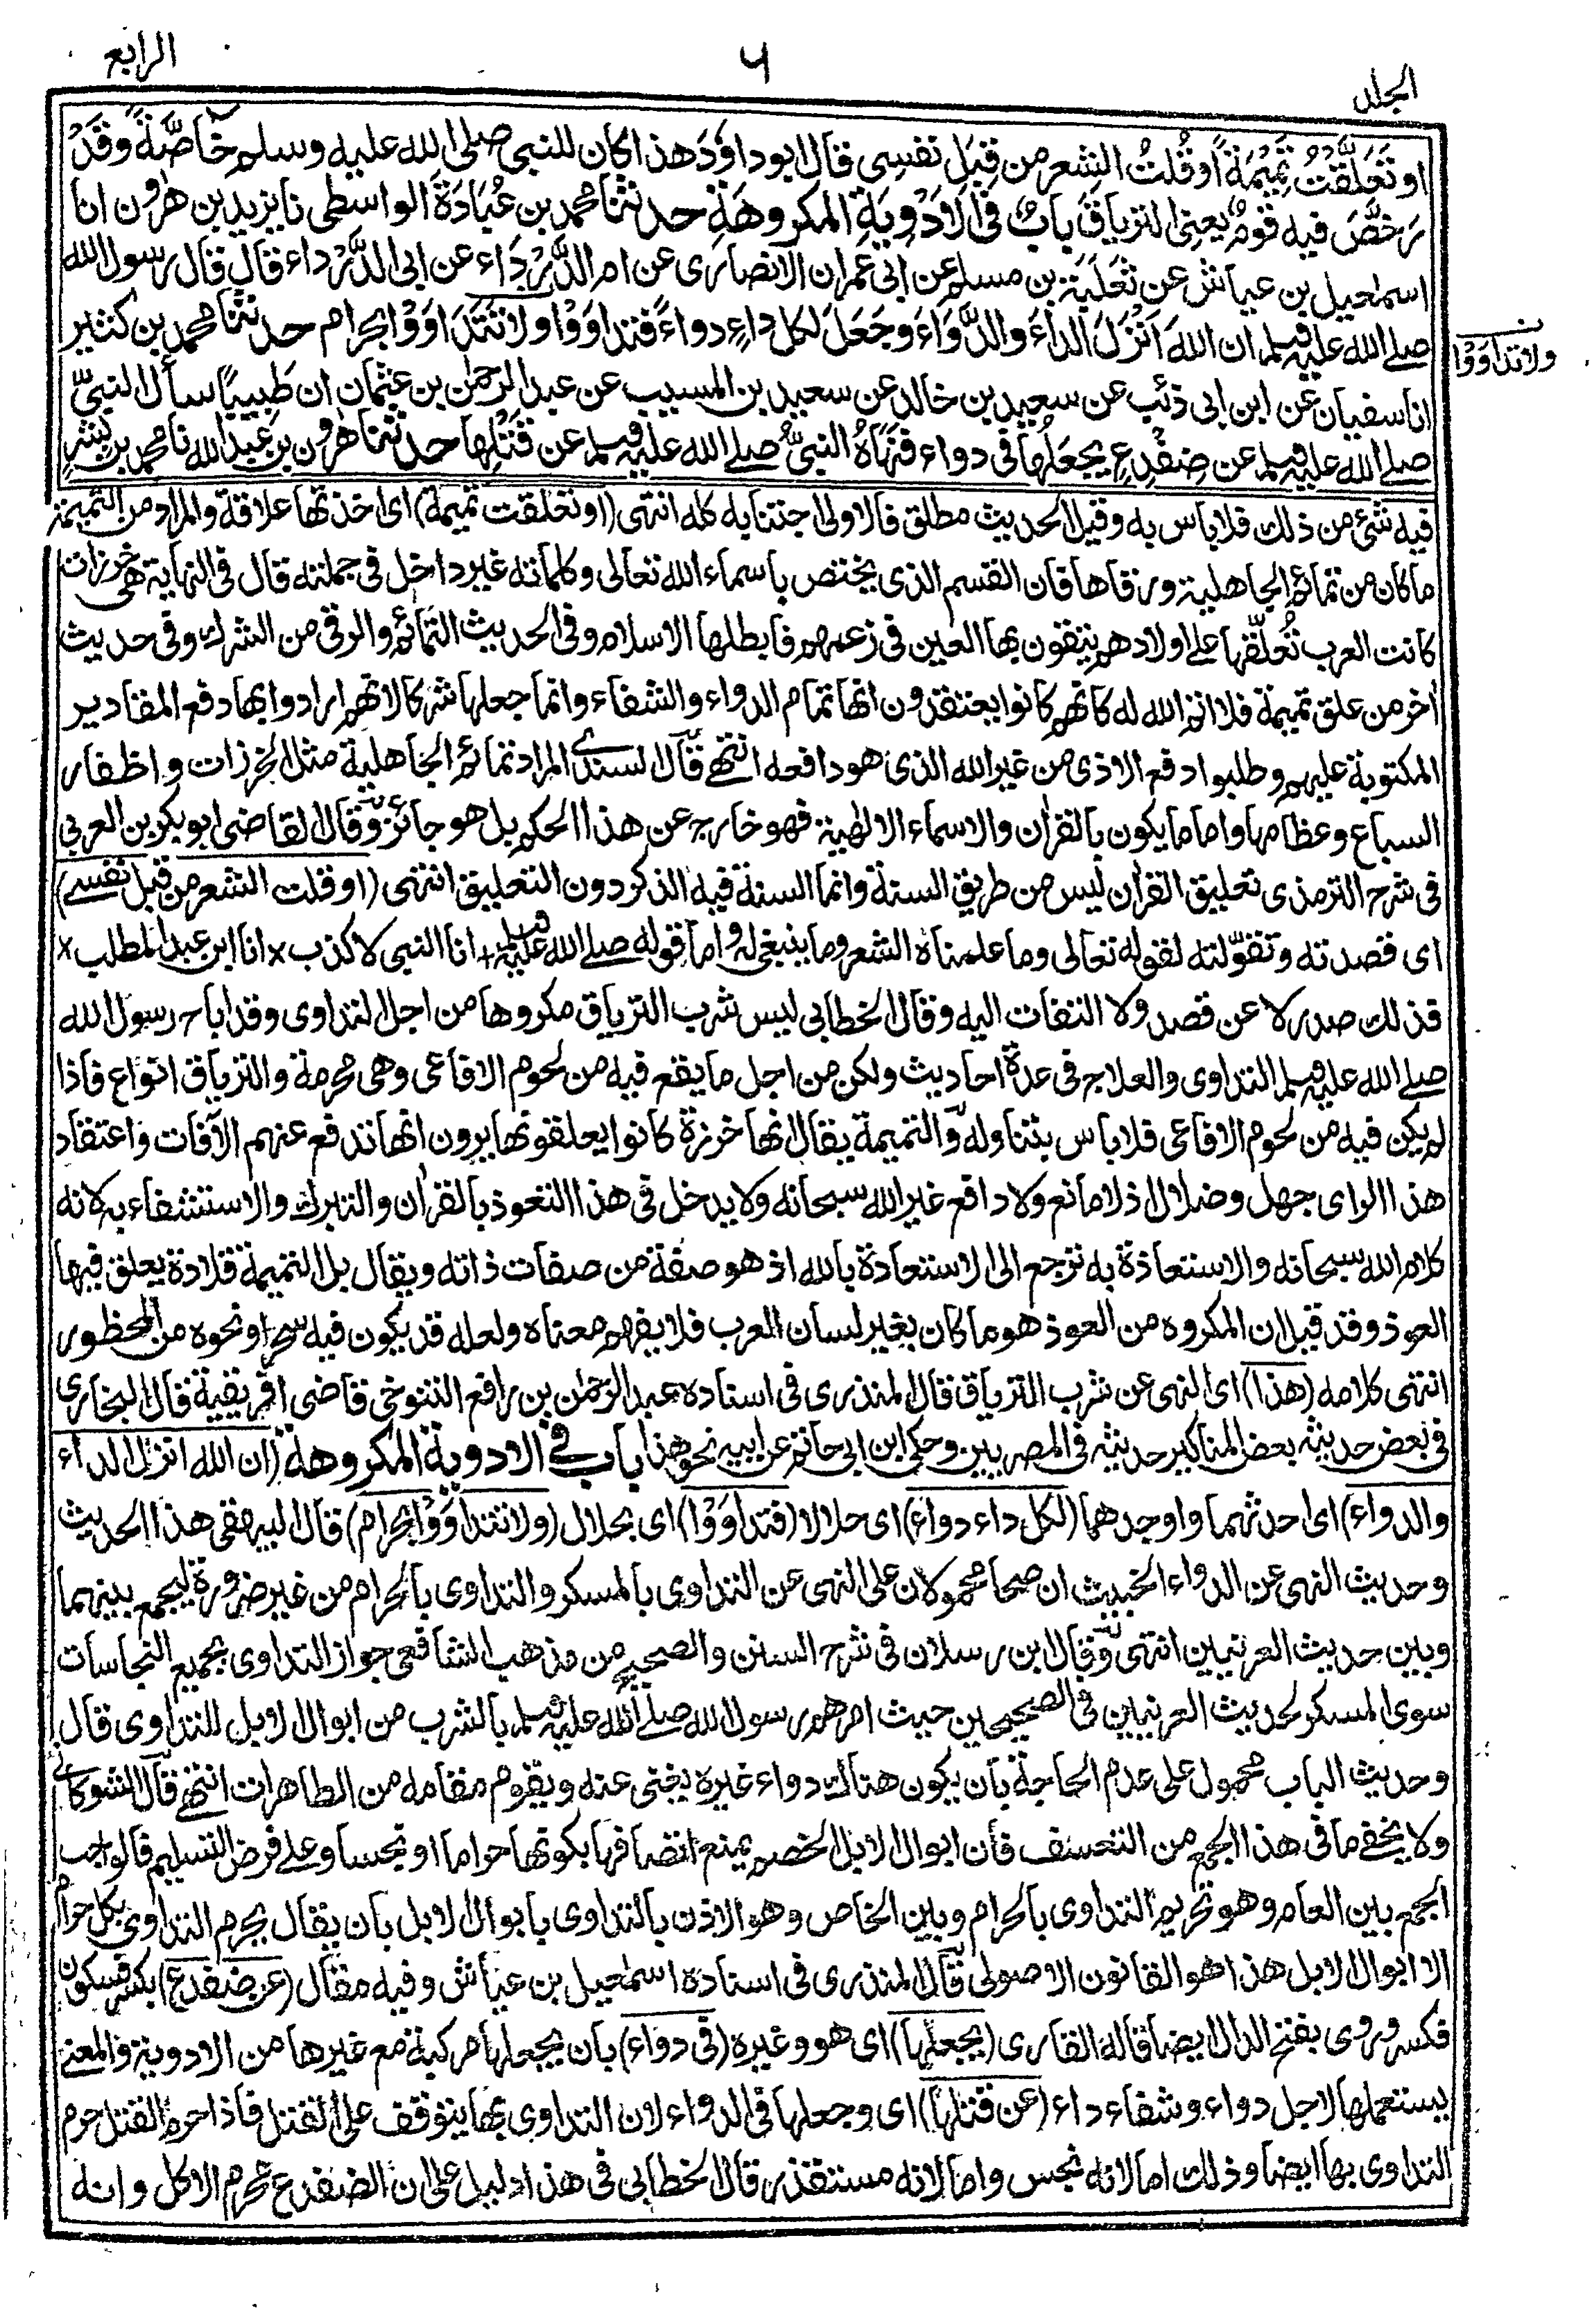 الجلد
٦
الرابع
او تَعَلَّقْتُ تَمِيْمَةً اَوْقُلتُ الشِعر من قِبَل نفسِى قال ابو داؤدَ هذا كان للنبى صلى الله عليه وسلم خَاصَّةً وقَدْ
رَخَّصَ فيه قومٌ يعنى الترياق بابٌ فى الاَدْوِيَةِ المكروهَةِ حدثنا محمد بن عُبَادَةَ الواسطى نا يزيد بن هٰرون انا
اسمٰعيل بن عياش عن ثعلَبَة بن مسلم عن ابى عمران الانصارى عن ام الدَّرْدَاء عن ابى الدَّرْداء قال قال رسول الله
صلے الله عليه وسلم ان اللهَ اَنْزَلَ الداءَ والدَّوَاءَ وجَعَلَ لكل داءٍ دواءً فتداوَوْا ولا تَتَدَاوَوْا بحرام حدثنا محمد بن كثير
ولا تداوَوْا
انا سفيان عن ابن ابى ذئب عن سعيد بن خالد عن سعيد بن المسيب عن عبد الرحمٰن بن عثمان ان طَبِيبًا سأل النبىَّ
صلے الله عليه وسلم عن ضِفْدِعٍ يجعَلُها فى دواء فنَهَاهُ النبىُّ صلے الله عليه وسلم عن قَتْلِها حدثنا هٰرون بن عبد الله نا محمد بن بِشْرٍ
فيه شئ من ذلك فلا باس به وقيل الحديث مطلق فالاولى اجتنابه كله انتهى (او تعلقت تميمة) اى اخذتها علاقة والمراد من التميمة
ما كان من تمائم الجاهلية ورقاها فان القسم الذى يختص باسماء الله تعالى وكلماته غير داخل فى جملته قال فى النهاية هى خرزات
كانت العرب تُعلّقها على اولادهم يتقون بها العين فى زعمهم فابطلها الاسلام وفى الحديث التمائم والرقى من الشرك وفى حديث
اٰخر من علق تميمة فلا اتم الله له كانهم كانوا يعتقدون انها تمام الدواء والشفاء وانما جعلها شركا لانهم ارادوا بها دفع المقادير
المكتوبة عليهم وطلبوا دفع الاذى من غير الله الذى هو دافعه انتهے قال السندے المراد تمائم الجاهلية مثل الخرزات واظفار
السباع وعظامها واما ما يكون بالقراٰن والاسماء الالٰهية فهو خارج عن هذا الحكم بل هو جائز وقال القاضى ابو بكر بن العربى
فى شرح الترمذى تعليق القراٰن ليس من طريق السنة وانما السنة فيه الذكر دون التعليق انتهى (او قلت الشعر من قبل نفسے)
اى قصدته وتقوّلته لقوله تعالى وما علمناه الشعر وما ينبغى له واما قوله صلے الله عليه وسلم + انا النبى لا كذب × انا ابن عبد المطلب ×
فذلك صدر لا عن قصد ولا التفات اليه وقال الخطابى ليس شرب الترياق مكروها من اجل التداوى وقد اباح رسول الله
صلے الله عليه وسلم التداوى والعلاج فى عدة احاديث ولكن من اجل ما يقع فيه من لحوم الافاعى وهى محرمة والترياق انواع فاذا
لم يكن فيه من لحوم الافاعى فلا باس بتناوله والتميمة يقال انها خرزة كانوا يعلقونها يرون انها تدفع عنهم الآفات واعتقاد
هذا الراى جهل وضلال اذ لا مانع ولا دافع غير الله سبحانه ولا يدخل فى هذا التعوذ بالقراٰن والتبرك والاستشفاء به لانه
كلام الله سبحانه والاستعاذة به ترجع الى الاستعاذة بالله اذ هو صفة من صفات ذاته ويقال بل التميمة قلادة يعلق فيها
العوذ وقد قيل ان المكروه من العوذ هو ما كان بغير لسان العرب فلا يفهم معناه ولعله قد يكون فيه سحر او نحوه من المحظور
انتهى كلامه (هذا) اى النهى عن شرب الترياق قال المنذرى فى اسناده عبد الرحمٰن بن رافع التنوخى قاضى افريقية قال البخارى
فى بعض حديثه بعض المناكير حديثه فى المصريين وحكى ابن ابى حاتم عن ابيه نحو هذا باب فى الادوية المكروهة (ان الله انزل الداء
والدواء) اى احدثهما واوجدهما (لكل داء دواء) اى حلالا (فتداوَوْا) اى بحلال (ولا تتداوَوْا بحرام) قال البيهقى هذا الحديث
وحديث النهى عن الدواء الخبيث ان صحا محمولان على النهى عن التداوى بالمسكر والتداوى بالحرام من غير ضرورة ليجمع بينهما
وبين حديث العرنيين انتهى وقال ابن رسلان فى شرح السنن والصحيح من مذهب الشافعى جواز التداوى بجميع النجاسات
سوى المسكر لحديث العرنيين فى الصحيحين حيث امرهم رسول الله صلے الله عليه وسلم بالشرب من ابوال الابل للتداوى قال
وحديث الباب محمول على عدم الحاجة بان يكون هناك دواء غيره يغنى عنه ويقوم مقامه من الطاهرات انتهے قال الشوكانے
ولا يخفے ما فى هذا الجمع من التعسف فان ابوال الابل الخصم يمنع اتصافها بكونها حراما او نجسا وعلى فرض التسليم فالواجب
الجمع بين العام وهو تحريم التداوى بالحرام وبين الخاص وهو الاذن بالتداوى بابوال الابل بان يقال يحرم التداوى بكل حرام
الا ابوال الابل هذا هو القانون الاصولى قال المنذرى فى اسناده اسمٰعيل بن عياش وفيه مقال (عن ضفدع) بكسر فسكون
فكسر وروى بفتح الدال ايضا قاله القارى (يجعلها) اى هو وغيره (فى دواء) بان يجعلها مركبة مع غيرها من الادوية والمعنے
يستعملها لاجل دواء وشفاء داء (عن قتلها) اى وجعلها فى الدواء لان التداوى بها يتوقف على القتل فاذا حرم القتل حرم
التداوى بها ايضا وذلك اما لانه نجس واما لانه مستقذر قال الخطابى فى هذا دليل على ان الضفدع محرم الاكل وانه